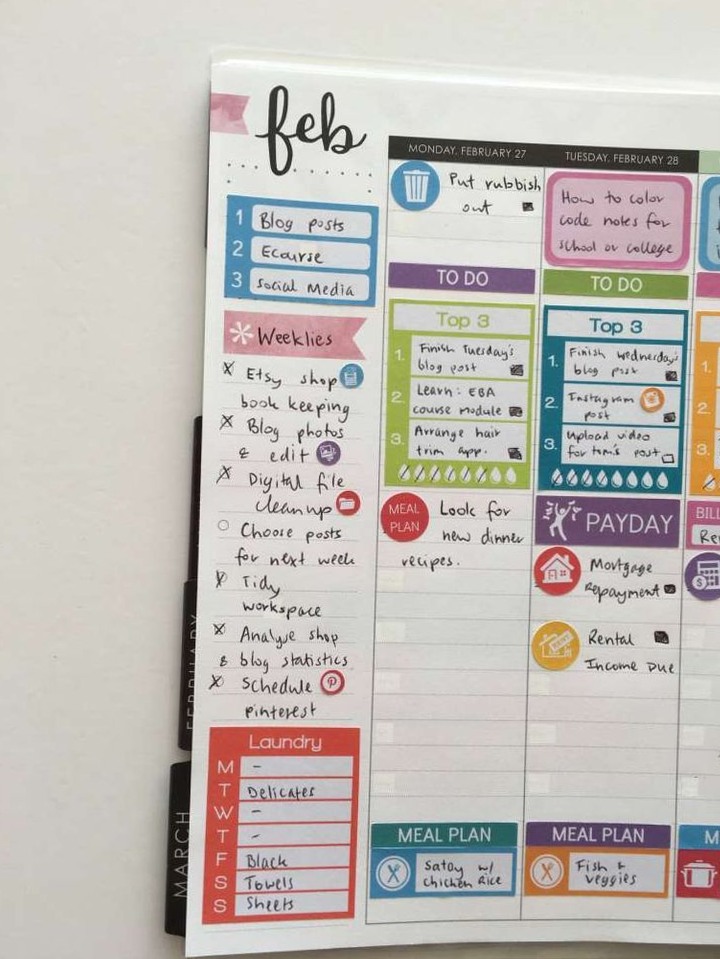 feb
1 Blog posts
2 Ecourse
3 Social Media
Weeklies
Etsy shop
book keeping
Blog photos
& edit
Digital file
clean up
Choose posts
for next week
Tidy
workspace
Analyse shop
& blog statistics
Schedule
pinterest
Laundry
M -
T Delicates
W -
T -
F Black
S Towels
S Sheets
FEBRUARY
MARCH
MONDAY, FEBRUARY 27
Put rubbish
out
TO DO
Top 3
1. Finish Tuesday's
blog post
2. Learn: EBA
course module
3. Arrange hair
trim app.
MEAL
PLAN
Look for
new dinner
recipes.
MEAL PLAN
Satay w/
chicken Rice
TUESDAY, FEBRUARY 28
How to color
code notes for
school or college
TO DO
Top 3
1. Finish wednesday's
blog post
2. Instagram
post
3. Upload video
for tom's post
PAYDAY
Mortgage
Repayment
Rental
Income Due
MEAL PLAN
Fish +
veggies
1.
2.
3.
BILL
Re
M